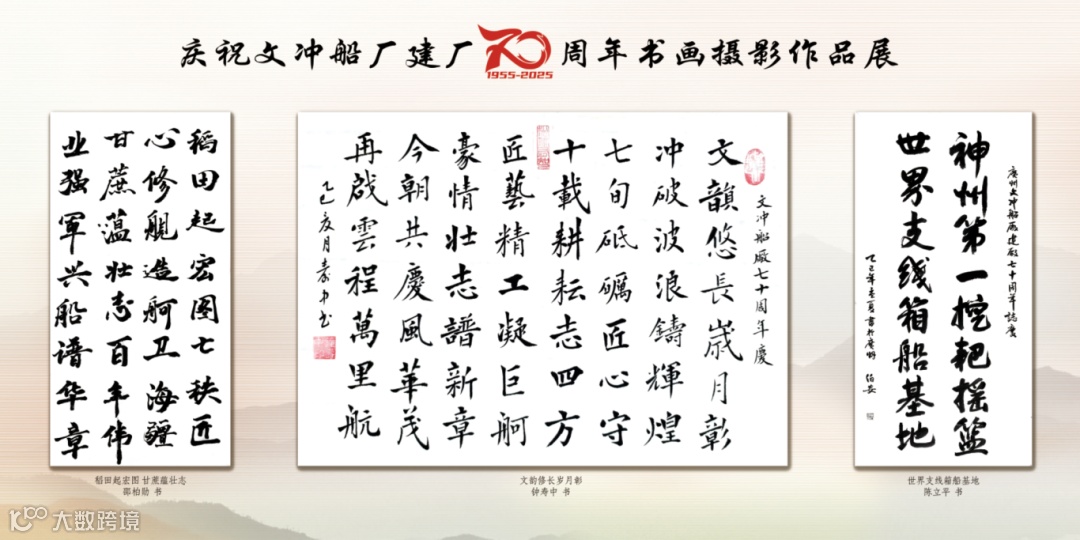 庆祝文冲船厂建厂70周年书画摄影作品展
1955-2025
稻田起宏图七秩匠
心修舰造舸卫海疆
甘蔗蕴壮志百年伟
业强军兴船谱华章
文冲船廠七十周年慶
文韻悠長歲月彰
冲破波浪鑄輝煌
七旬砥礪匠心守
十載耕耘志四方
匠藝精工凝巨舸
豪情壮志譜新章
今朝共慶風華茂
再啟雲程萬里航
乙巳夏月寿中书
广州文冲船厰建廠七十周年誌慶
神州第一挖耙摇篮
世界支线箱船基地
稻田起宏图 甘蔗蕴壮志
邵柏勋 书
文韵修长岁月彰
钟寿中 书
世界支线箱船基地
陈立平 书
大数跨境